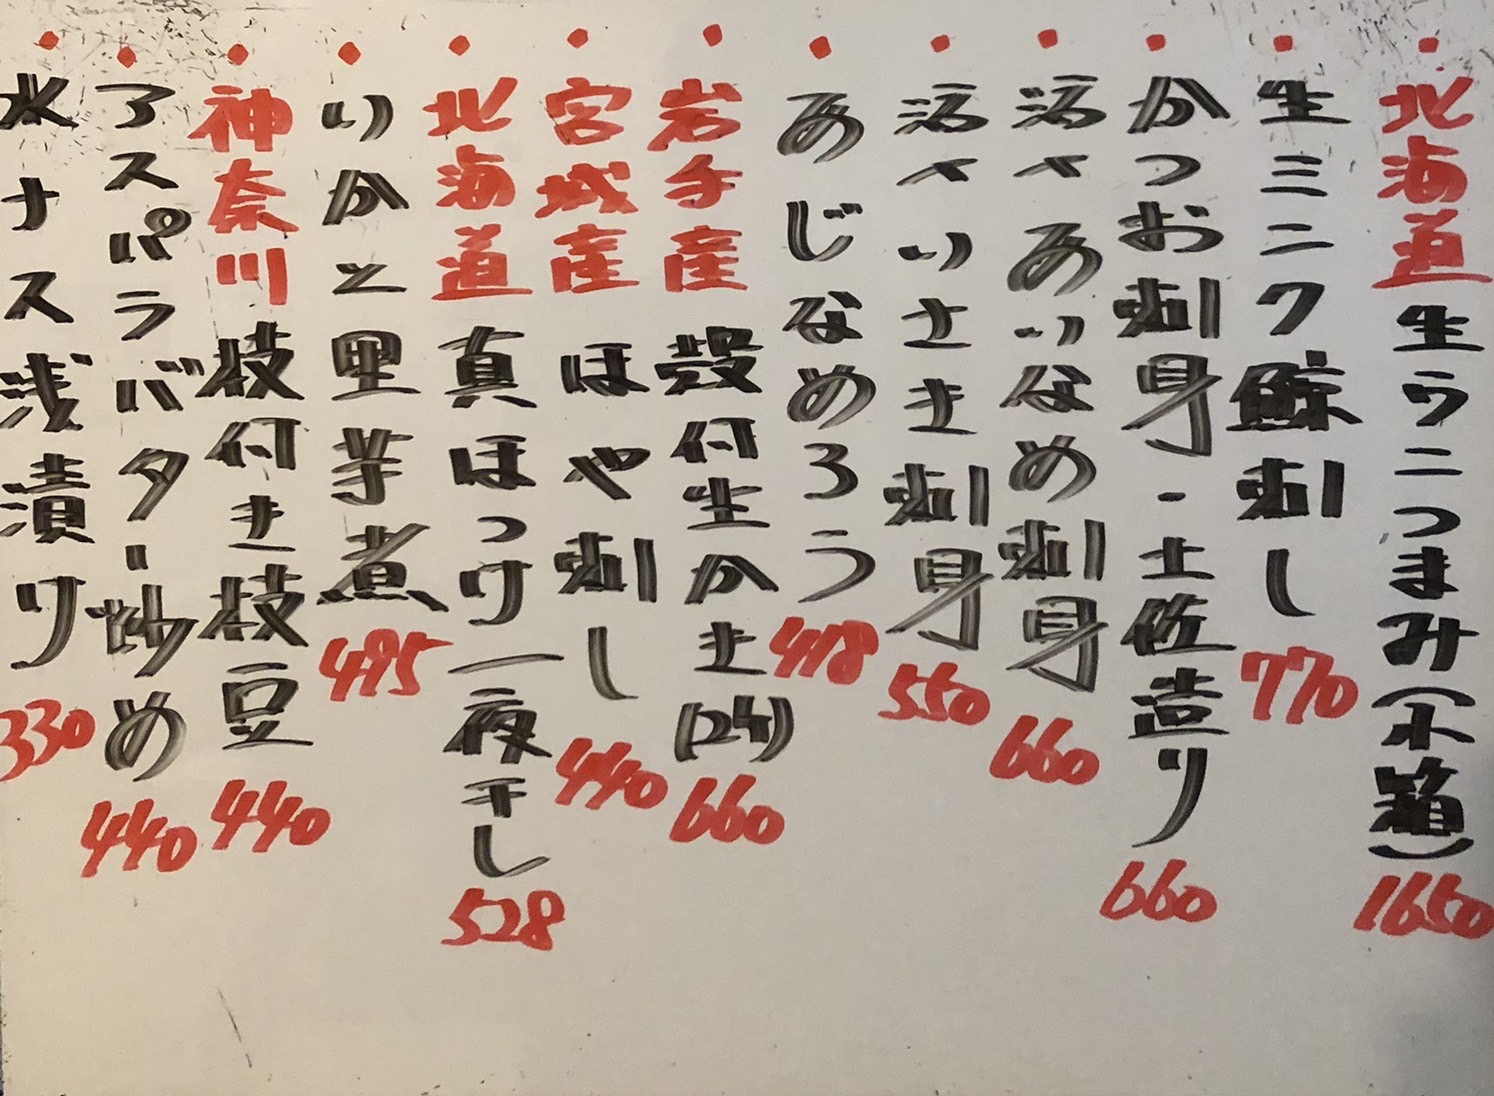 ・北海道生ウニつまみ(小箱)1650
・生ミンク鯨刺し770
・かつお刺身・土佐造り660
・活〆あいなめ刺身660
・活〆いさき刺身550
・あじなめろう418
・岩手産殻付生かき(2ヶ)660
・宮城産ほや刺し440
・北海道真ほっけ一夜干し528
・いかと里芋煮495
・神奈川枝付き枝豆440
・アスパラバター炒め440
水ナス浅漬り330